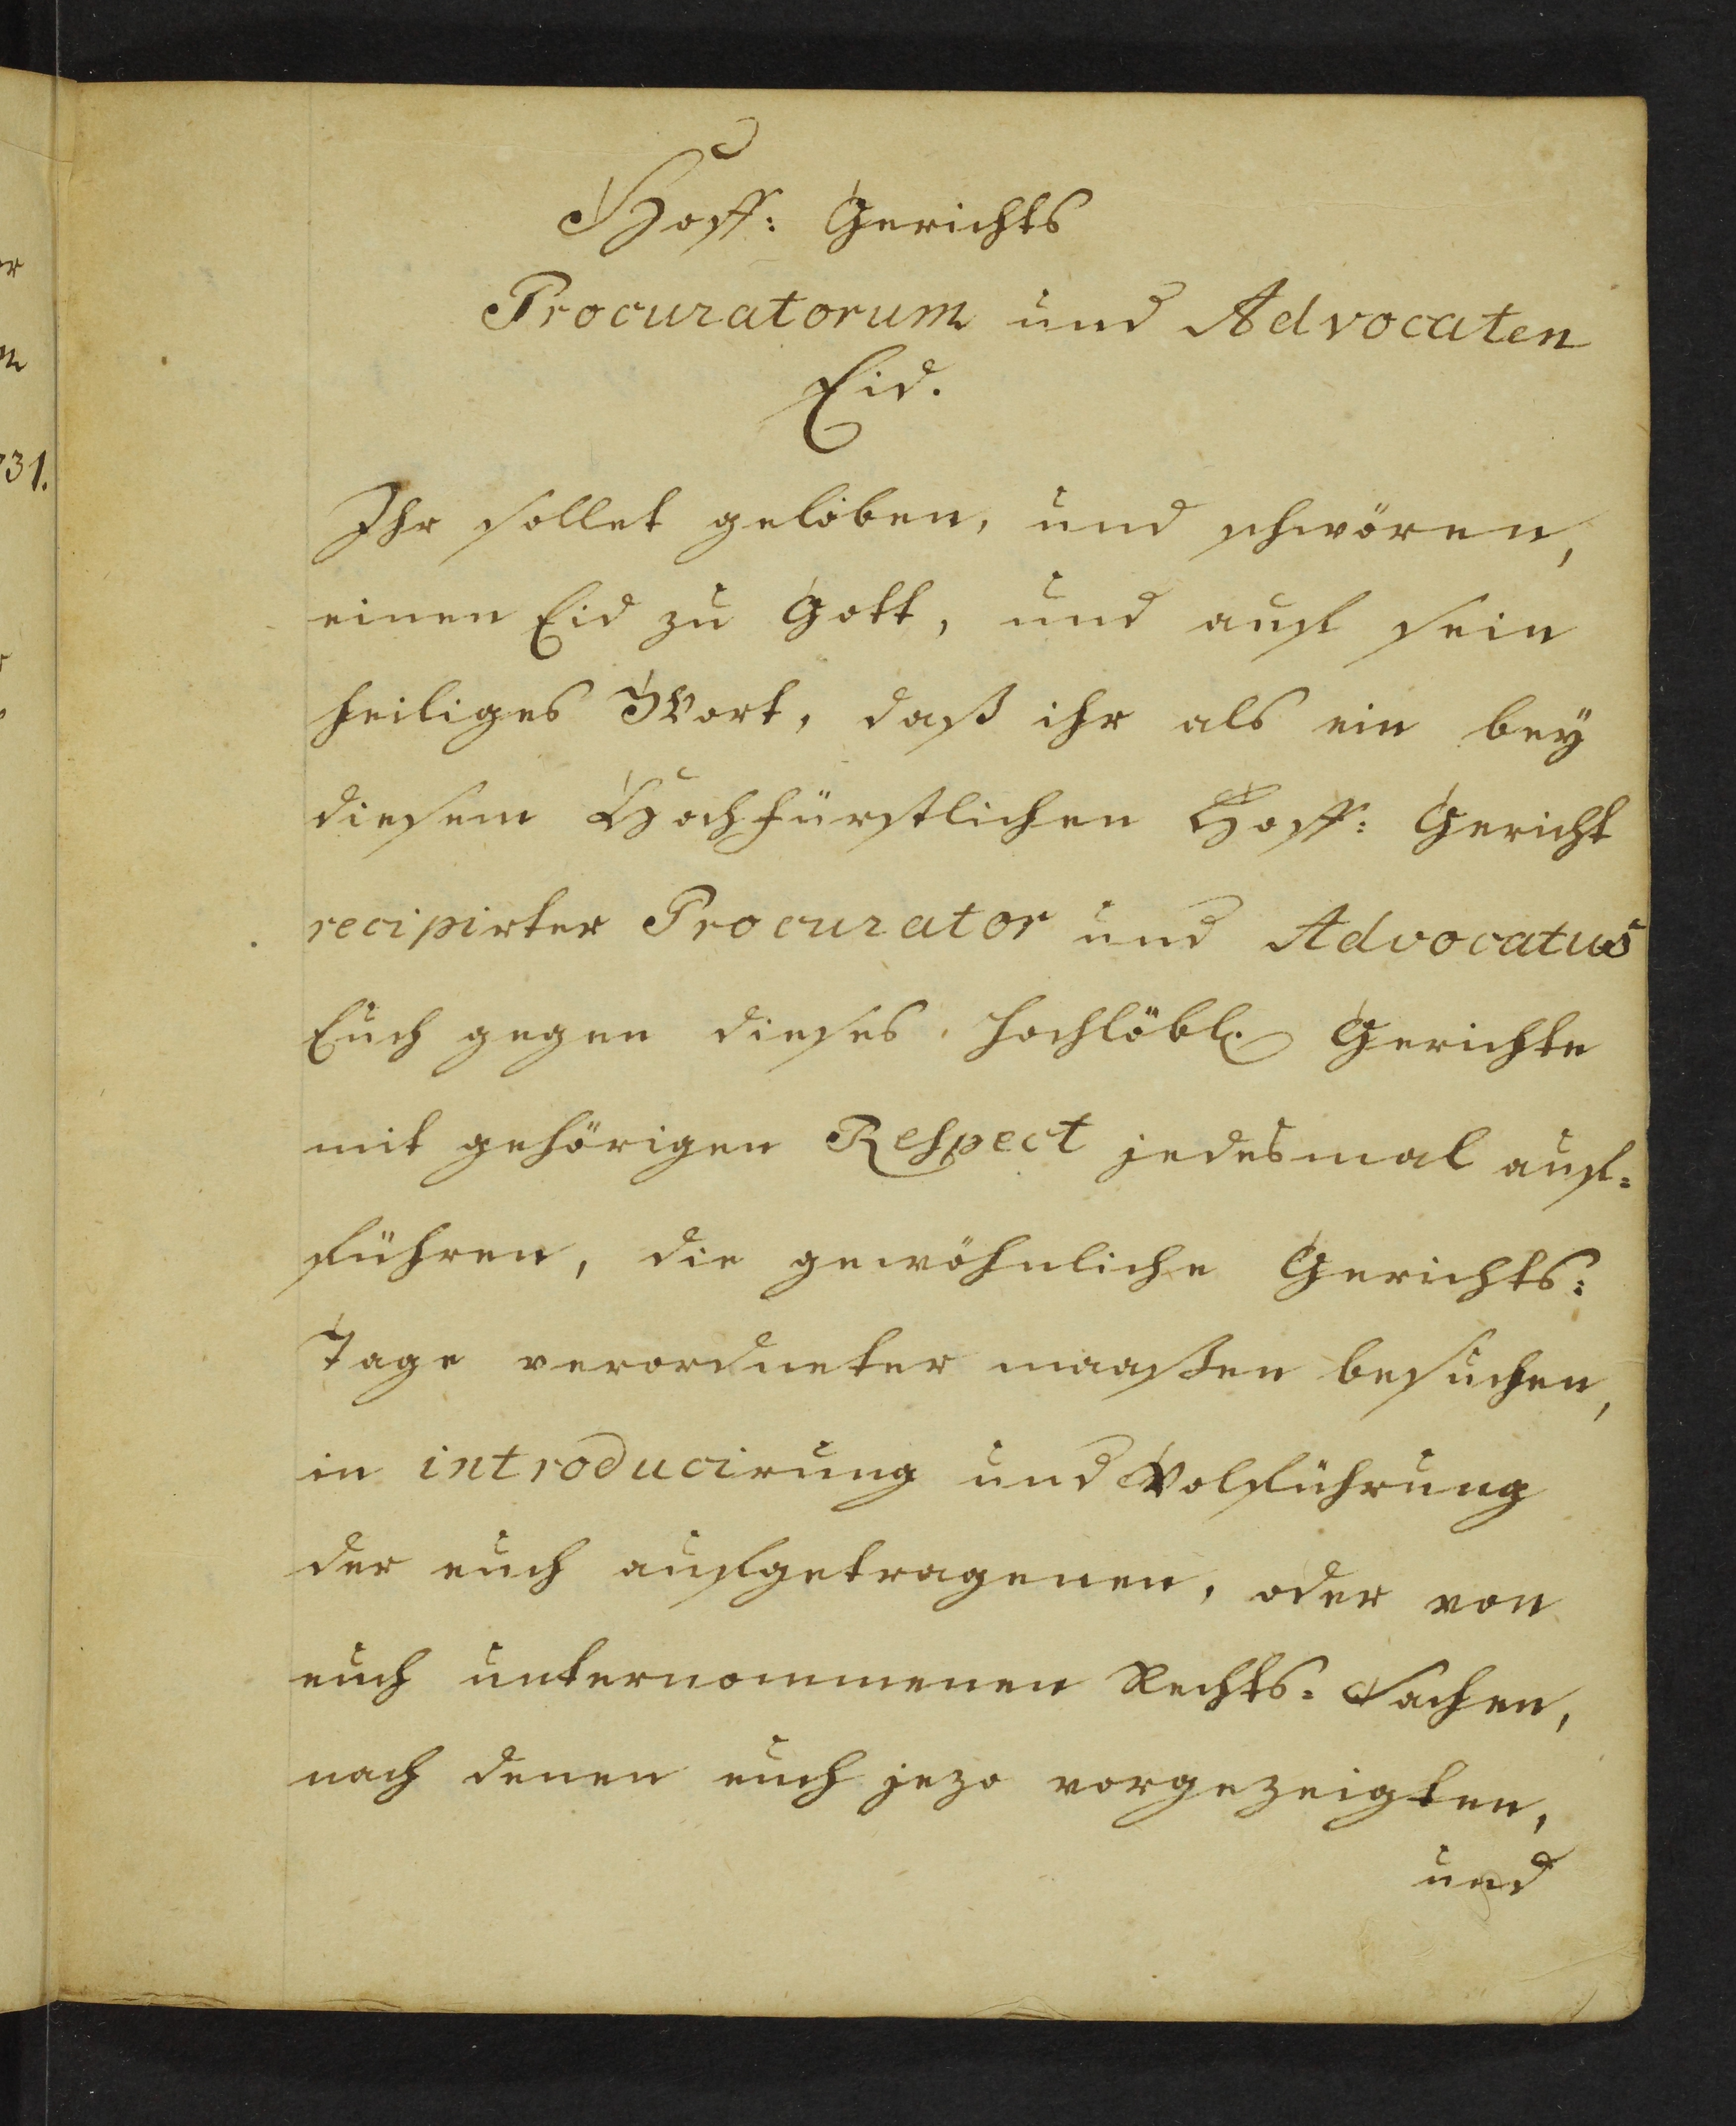 Hoff: Gerichts
Procuratorum und Advocaten
Eid.
Ihr sollet geloben, und schwören,
einen Eid zu Gott, und auf sein
heiliges Wort, daß ihr als ein bey
diesem Hochfürstlichen Hoff: Gericht
recipirter Procurator und Advocatus
Euch gegen dieses hochlöbl. Gerichte
mit gehörigen Respect jedesmal auf=
führen, die gewöhnliche Gerichts:
Tage verordneter maaßen besuchen,
in introducirung und Volführung
der euch aufgetragenen, oder von
euch unternommenen Rechts= Sachen,
nach denen euch jezo vorgezeigten,
und
31.